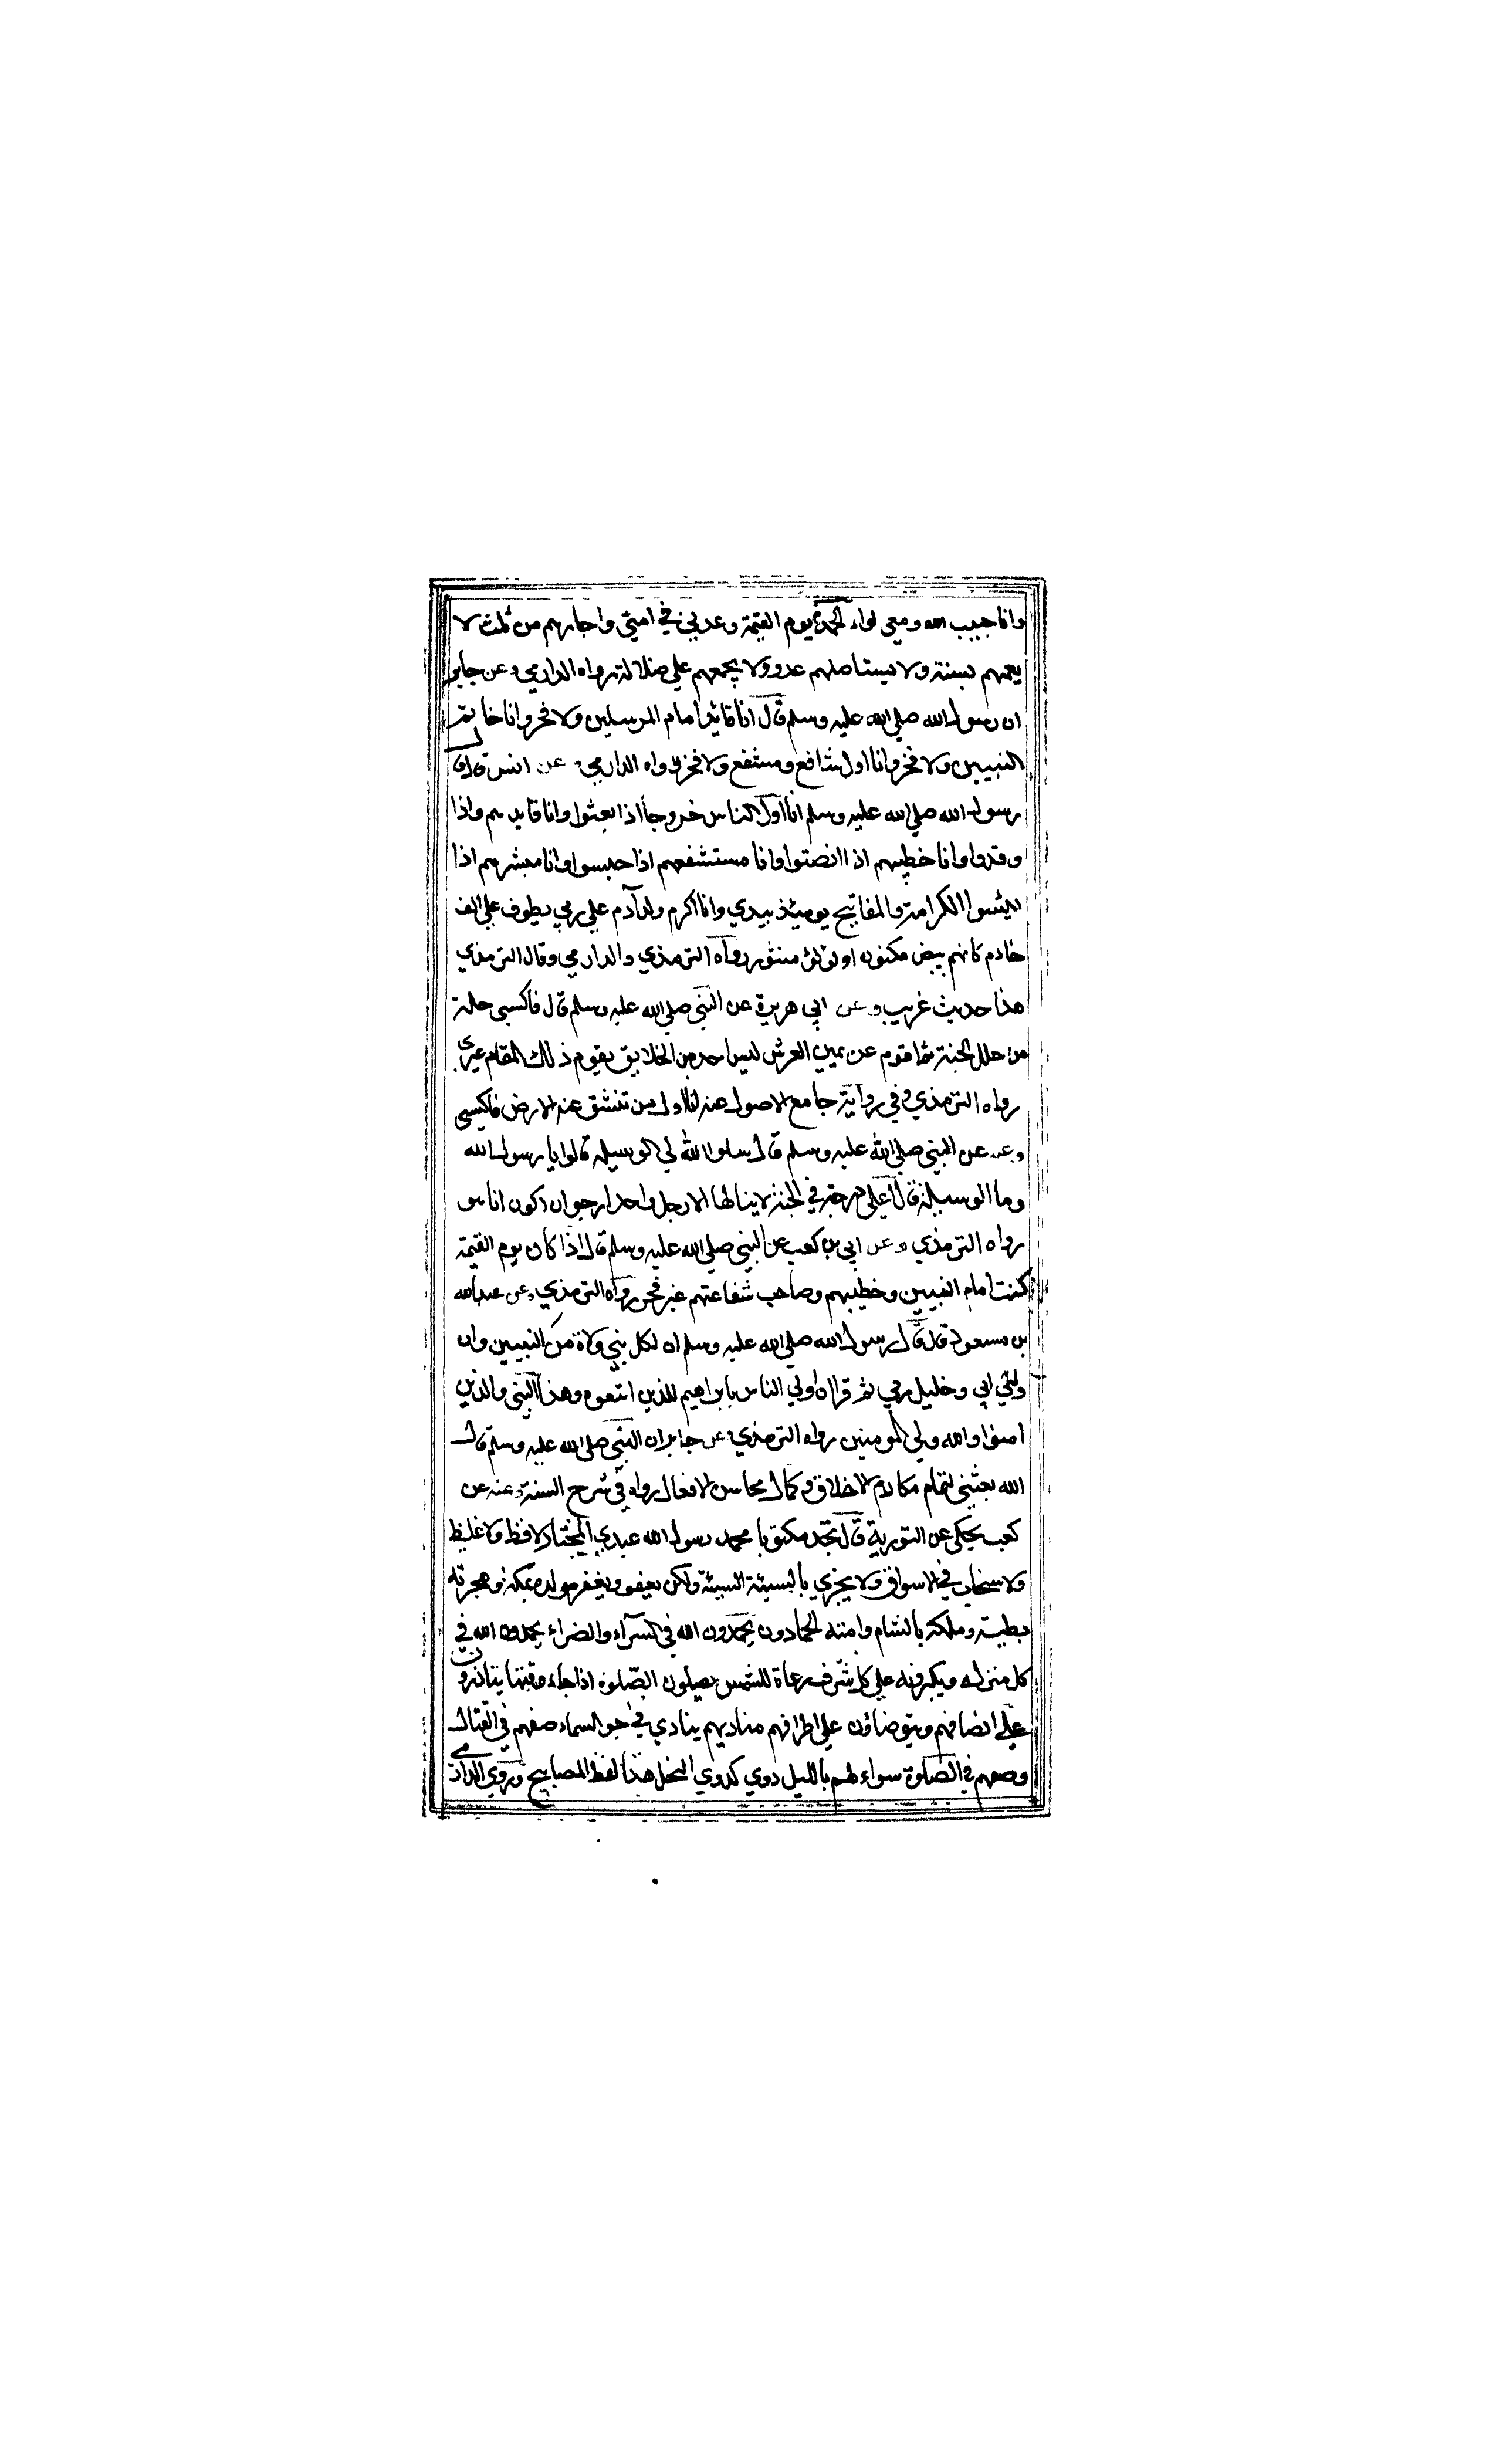 وانا حبيب الله ومعي لواء الحمد يوم القيمة وعدني في امتي واجارهم من ثلث لا
يعمهم بسنة ولا يستاصلهم عدو ولا يجمعهم علي ضلالة رواه الدارمي وعن جابر
ان رسول الله صلي الله عليه وسلم قال انا قائد امام المرسلين ولا فخر وانا خاتم
النبيين ولا فخر وانا اول شافع ومشفع ولا فخر رواه الدارمي عن انس قال قال
رسول الله صلي الله عليه وسلم انا اول الناس خروجا اذا بعثوا وانا قايدهم واذا
وفدوا وانا خطيبهم اذا انصتوا وانا مستشفعهم اذا حبسوا وانا مبشرهم اذا
ايئسوا الكرامة والمفاتيح يوميئذ بيدي وانا اكرم ولد آدم علي ربي يطوف علي الف
خادم كانهم بيض مكنون او لؤلؤ منثور رواه الترمذي والدارمي وقال الترمذي
هذا حديث غريب وعن ابي هريرة عن النبي صلي الله عليه وسلم قال فاكسى حلة
من حلل الجنة ثم اقوم عن يمين العرش ليس احد من الخلايق يقوم ذلك المقام غيري
رواه الترمذي وفي رواية جامع الاصول عنه انا اول من تنشق عنه الارض فاكسى
وعنه عن النبي صلي الله عليه وسلم قال سلوا الله لي الوسيلة قالوا يا رسول الله
وما الوسيلة قال اعلي درجة في الجنة لا ينالها الا رجل واحد ارجو ان اكون انا هو
رواه الترمذي وعن ابي بن كعب عن النبي صلي الله عليه وسلم قال اذا كان يوم القيمة
كنت امام النبيين وخطيبهم وصاحب شفاعتهم غير فخر رواه الترمذي وعن عبد الله
بن مسعود قال قال رسول الله صلي الله عليه وسلم ان لكل نبي ولاة من النبيين وان
وليي ابي وخليل ربي ثم قرا ان اولي الناس بابراهيم للذين اتبعوه وهذا النبي والذين
امنوا والله ولي المومنين رواه الترمذي وعن جابر ان النبي صلي الله عليه وسلم قال
الله بعثني لتمام مكارم الاخلاق وكمال محاسن الافعال رواه في شرح السنة وعنه عن
كعب يحكي عن التورية قال نجد مكتوبا محمد رسول الله عبدي المختار لا فظ ولا غليظ
ولا سخاب في الاسواق ولا يجزي بالسيئة السيئة ولكن يعفو ويغفر مولده بمكة وهجرته
بطيبة وملكه بالشام وامته الحمادون يحمدون الله في السرآء والضراء يحمدون الله في
كل منزلة ويكبرونه علي كل شرف رعاة للشمس يصلون الصلوة اذا جاء وقتها يتازرون
علي انصافهم ويتوضاؤن علي اطرافهم مناديهم ينادي في جو السماء صفهم في القتال
وصفهم في الصلوة سواء لهم بالليل دوي كدوي النحل هذا لفظ المصابيح وروي الدارمي